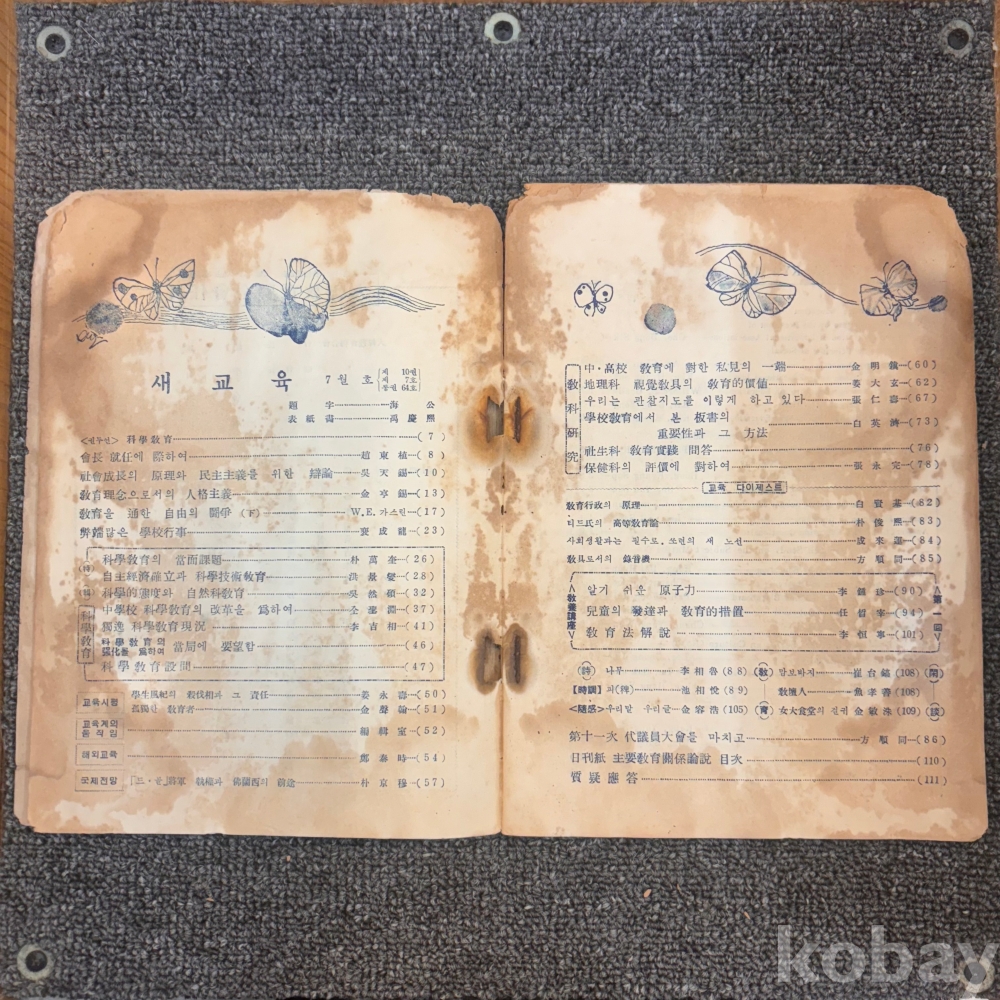 새 교 육 7월호 제 10권 제 7호 통권 64호
題 字 海 公
表紙 畵 馮慶熙
科學敎育 (7)
會長 就任에 際하여 趙東植 (8)
社會成長의 原理와 民主主義를 위한 辯論 吳天錫 (10)
敎育理念으로서의 人格主義 金亨錫 (13)
敎育을 通한 自由의 鬪爭 (下) W.E.가스틴 (17)
弊端많은 學校行事 裵成龍 (23)
科學敎育
科學敎育의 當面課題 朴萬奎 (26)
自主經濟確立과 科學技術敎育 洪景 (28)
科學的態度와 自然科敎育 吳然 (32)
中學校 科學敎育의 改革을 爲하여 (37)
獨逸 科學敎育現況 李吉相 (41)
科學敎育의 强化를 爲하여 當局에 要望함 (46)
科學敎育設問 (47)
교육시평
學生風紀의 殺伐相과 그 責任 姜永壽 (50)
孤獨한 敎育者 金聲翰 (51)
교육계의 움직임 編輯室 (52)
해외교육 鄭泰時 (54)
국제전망 「드·골」將軍 執權과 佛蘭西의 前途 朴京穆 (57)
敎科硏究
中·高校 敎育에 對한 私見의 一端 金明 (60)
地理科 視覺敎具의 敎育的價値 姜大玄 (62)
우리는 관찰지도를 이렇게 하고 있다 張仁壽 (67)
學校敎育에서 본 板書의
重要性과 그 方法 白英 (73)
社生科 敎育實踐 問答 (76)
保健科의 評價에 對하여 張永完 (78)
교육 다이제스트
敎育行政의 原理 白賢基 (82)
티드氏의 高等敎育論 朴俊熙 (83)
사회생활과는 필수로, 쏘련의 새 노선 成來運 (84)
敎具로서의 錄音機 方順同 (85)
<敎養講座> <第一回>
알기 쉬운 原子力 李 珍 (90)
兒童의 發達과 敎育的措置 任 宰 (94)
敎育法解說 李恒寧 (101)
(詩) 나무 李相魯 (88)
【時調】 피(稗) 池相悅 (89)
<隨感> 우리말 우리글 金容浩 (105)
敎育閑談
맘보바지 崔台鎬 (108)
敎壇人 魚孝善 (108)
女大食堂의 진귀 金敏洙 (109)
第十一次 代議員大會를 마치고 方順同 (86)
日刊紙 主要敎育關係論說 目次 (110)
質疑應答 (111)
kobay